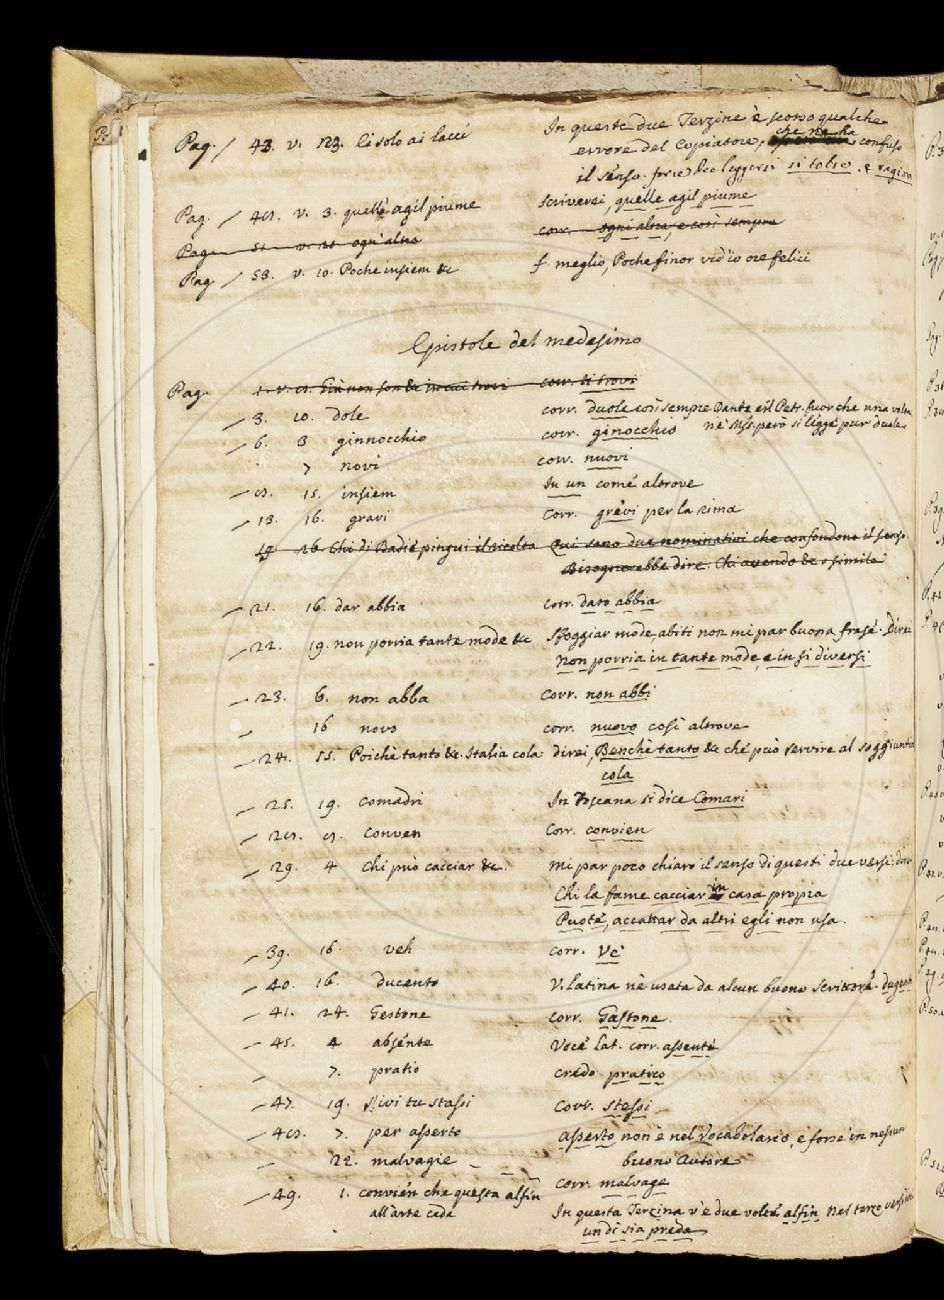 Pag. / 43. v. 123. Ei solo ai lacci
In queste due Terzine è scorso qualche
errore del Copiatore, che ne ha confuso
il senso. forse dee leggersi si tolse, e ragion
Pag. / 48. v. 3. quelle agil piume
scriverei, quelle agil piume
Pag. 51 v. 21 ogn'altra
corr. ogni altra, e così sempre
Pag / 58. v. 10. Poche insiem &c
f. meglio, Poche finor vid'io ore felici
Epistole del medesimo
Pag. 1. v. 8. Già non son &c in cui trovi corr. ti trovi
— 3. 10. dole corr. duole così sempre Dante e il Petr. fuor che una volta
ne' Mss. però si legge pur duole.
— 6. 3 ginnocchio corr. ginocchio
7 novi corr. nuovi
— 8. 15. insiem In un come altrove
— 13. 16. gravi corr. grevi per la rima
19 26 Chi di Badie pingui il ricolto Qui sono due nominativi che confondono il senso.
Bisognerebbe dire. Chi avendo &c o simile
— 21. 16. dar abbia corr. dato abbia
— 22. 19. non porria tante mode &c Sfoggiar mode, abiti non mi par buona frase. Direi
Non porria in tante mode, e in sì diversi
— 23. 6. non abba corr. non abbi
— 16 novo corr. nuovo così altrove
— 24. 15. Poichè tanto &c. Italia cola direi, Benchè tanto &c che può servire al soggiunto
cola
— 25. 19. comadri In Toscana si dice Comari
— 28. 8. conven corr. convien
— 29. 4 Chi può cacciar &c. Mi par poco chiaro il senso di questi due versi: direi
Chi la fame cacciar in casa propria
Puote, accattar da altri egli non usa.
— 39. 16. veh corr. Ve'
— 40. 16. ducento V. latina nè usata da alcun buono scrittore. dugento
— 41. 24. Gestone corr. Gastone.
— 45. 4 absente Voce Lat. corr. assente
— 7. pratio credo pratico
— 47. 19. s'ivi tu stassi corr. stessi
— 48. 7. per asserto Asserto non è nel Vocabolario, e forse in nessun
buono Autore
— 22. malvagie corr. malvage
— 49. 1. convien che questa alfin
all'arte ceda
In questa Terzina v'è due volte alfin nel terzo verso
un dì sia preda